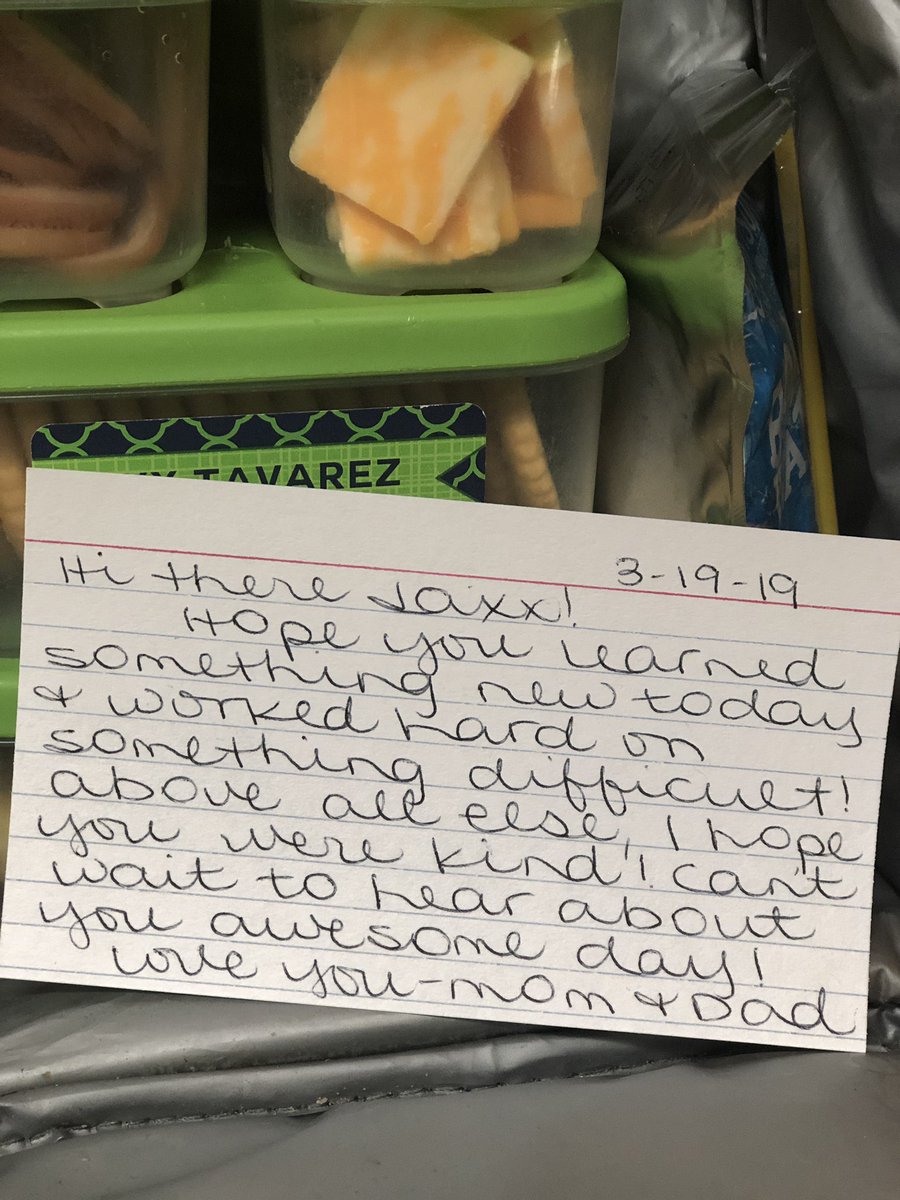 TAVAREZ
3-19-19
Hi there Jaxx!
Hope you learned
something new today
& worked hard on
something difficult!
above all else, I hope
you were kind! Can't
wait to hear about
you awesome day!
Love you-mom & Dad